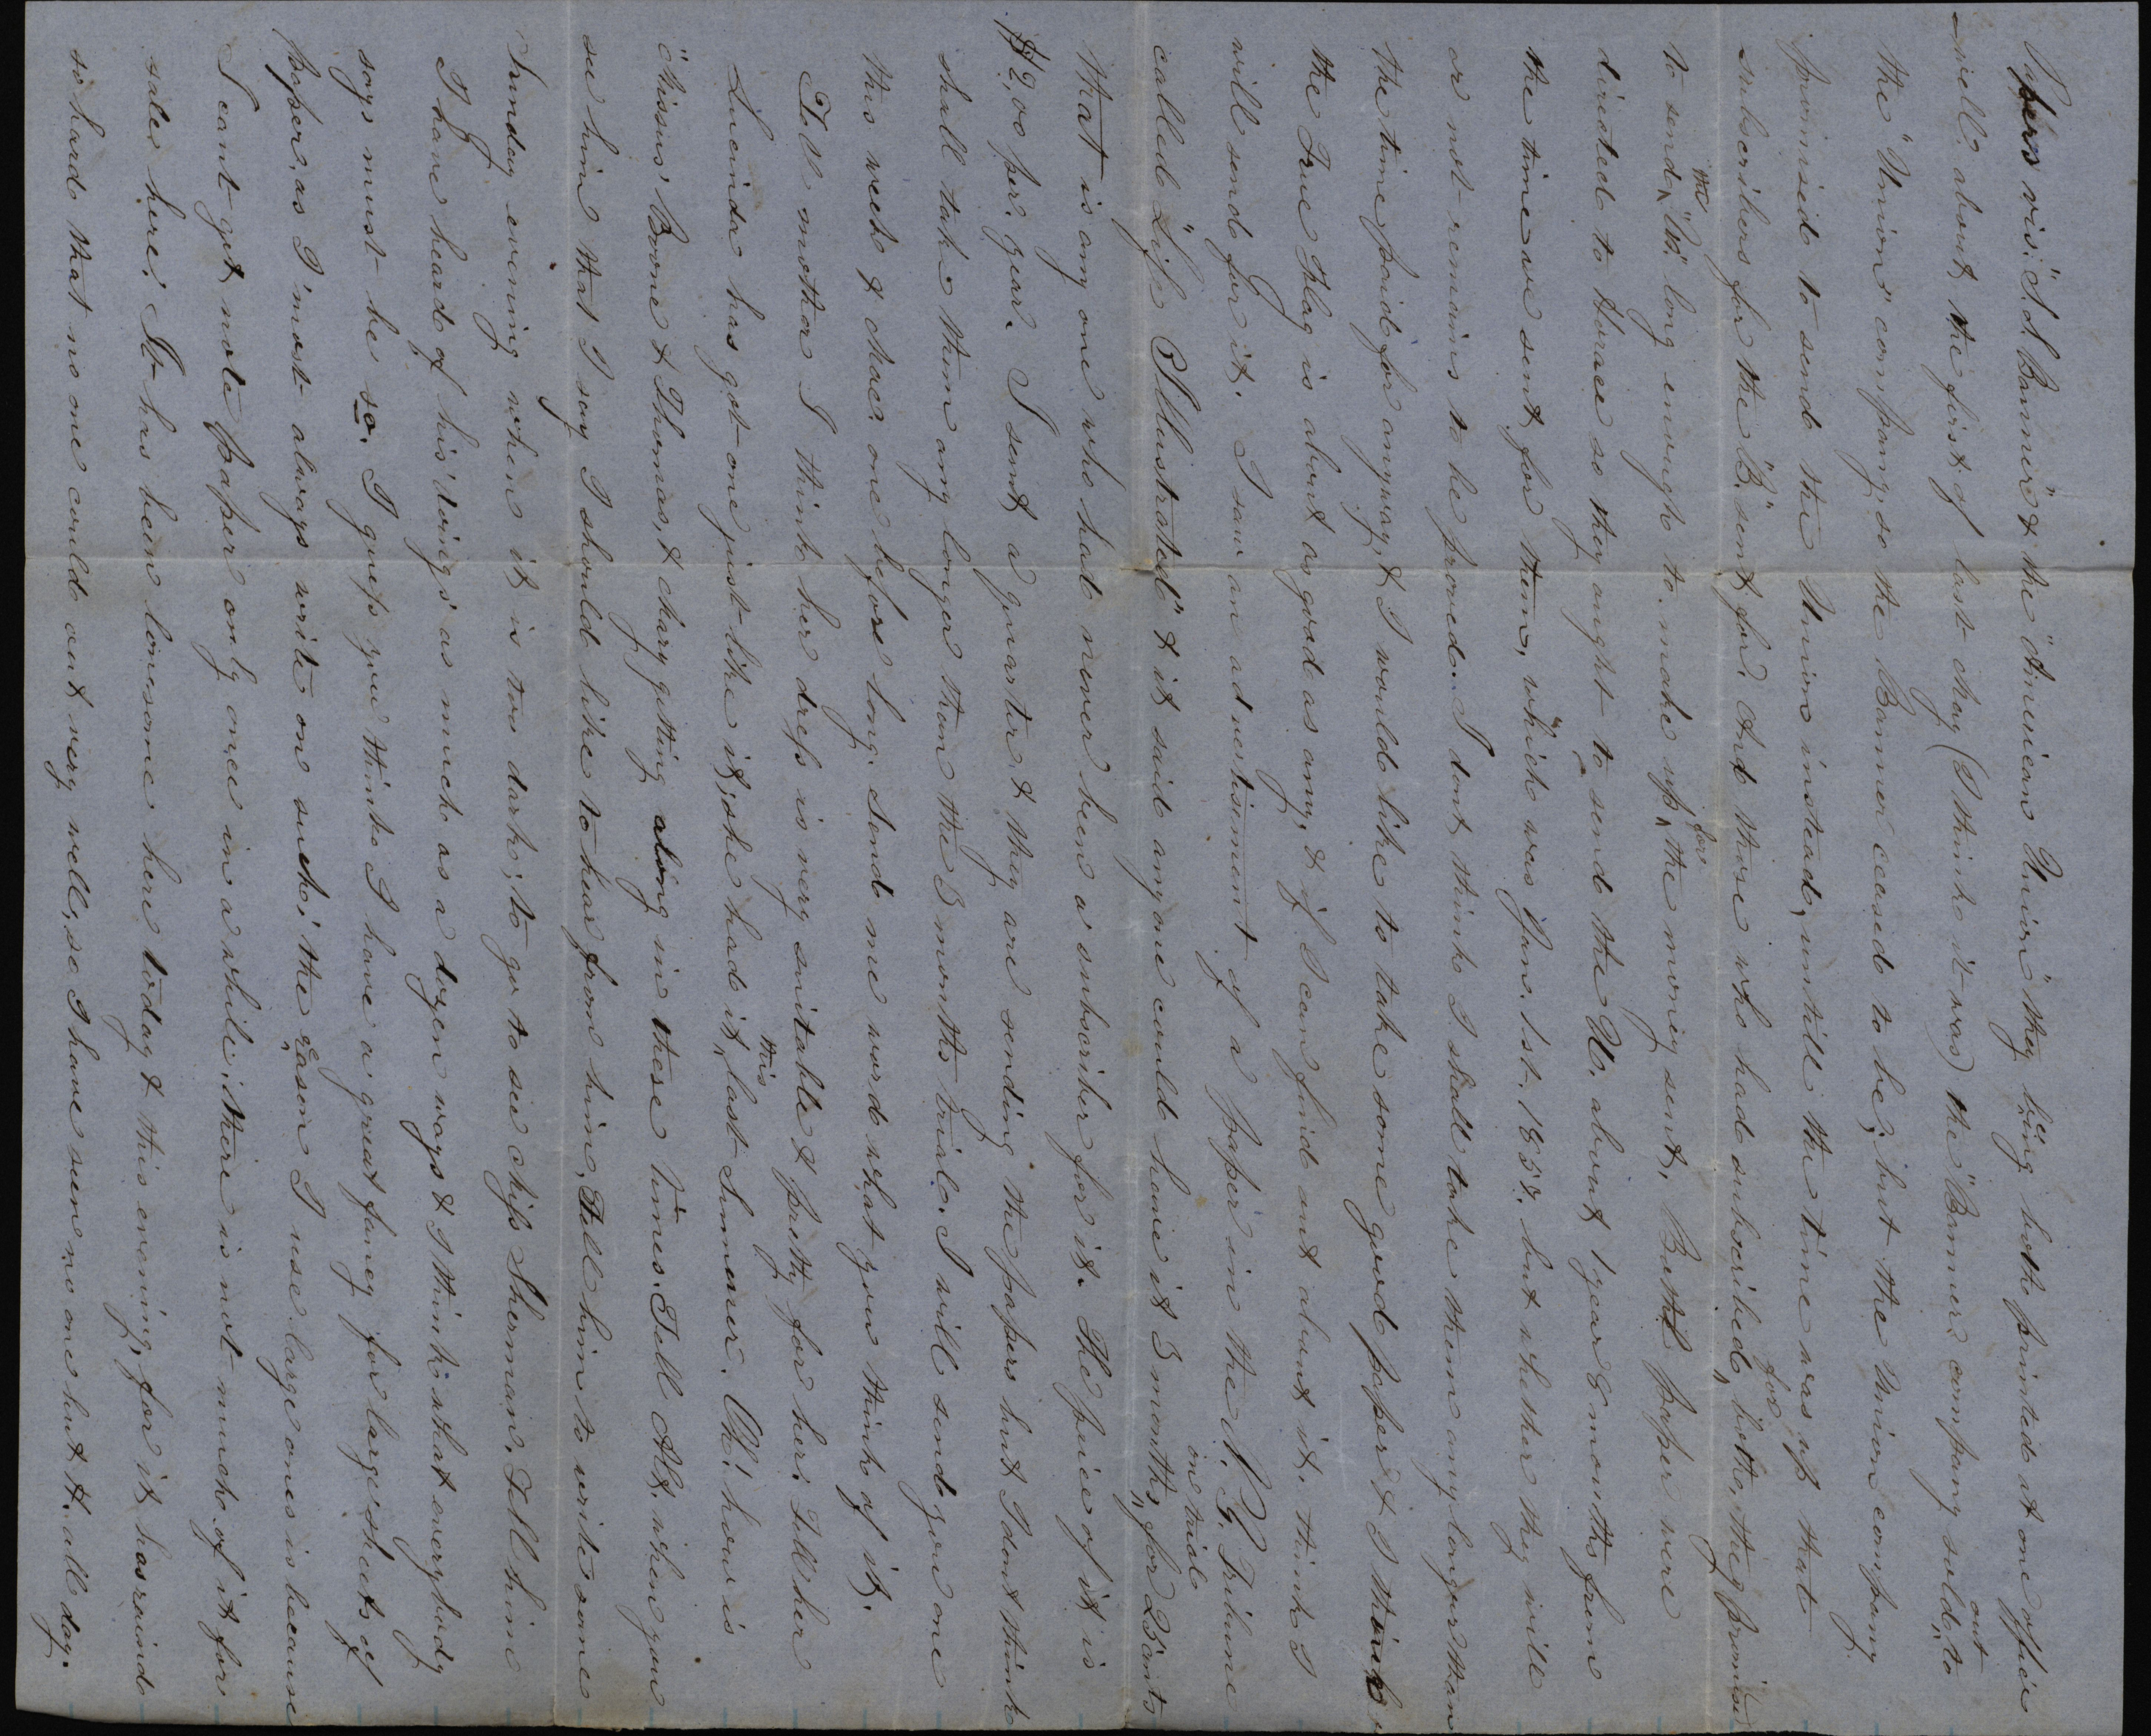 Papers vis. "S. S. Banner" & the "American Union" they being both printed at one office
well, about the first of last May (I think it was) the "Banner company sold out to
the "Union" company, so the Banner ceased to be; but the Union company
promised to send the Union instead, untill the time was up that
subscribers for the "B." sent for. And those who had subscribed for both, they promised
to send the "U." long enough to make up for the money sent. Both papers were
directed to Horace so they ought to send the U. about 1 year & 8 months from
the time we sent for them, which was Jan. 1st. 1858. but whether they will
or not remains to be proved. I dont think I shall take them any longer than
the time paid for anyway, & I would like to take some good paper & I think
the True Flag is about as good as any, & if I can find out about it, think I
will send for it. I saw an advertisement of a paper in the N. Y. Tribune
called "Life Illustrated" & it said anyone could have it 3 months, on trial for 25 cents
that is any one who had never been a subscriber for it. The price of it is
$2,00 per. year. I sent a quarter & they are sending the papers but I dont think
shall take them any longer than the 3 months trial. I will send you one
this week & Mac. one before long. Send me word what you think of it.
Tell mother I think her dress is very suitable & pretty for her. Tell her
Lucinda has got one just like it; she had it this last Summer. Oh! how is
"Missus" Brone & Thomas, & Mary getting along in these times. Tell Alt. when you
see him that I say I should like to hear from him, Tell him to write some
Sunday evening when it is too dark, to go to see Miss Sherman. Tell him
I have heard of his doings as much as a dozen ways & I think what everybody
says must be so. I guess you think I have a great fancy for large sheets of
paper, as I most always write on such; the reason I use large ones is because
I cant get note paper only once in a while; there is not much of it for
sale here. It has been lonesome here today & this evening, for it has raind
so hard that no one could out very well, so I have seen no one but H. all day.